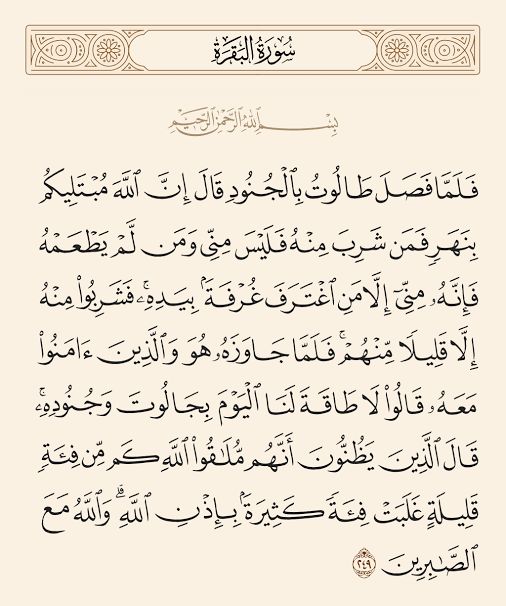 سُورَةُ البَقَرَةِ
بِسْمِ ٱللَّهِ ٱلرَّحْمَٰنِ ٱلرَّحِيمِ
فَلَمَّا فَصَلَ طَالُوتُ بِٱلْجُنُودِ قَالَ إِنَّ ٱللَّهَ مُبْتَلِيكُم
بِنَهَرٍ فَمَن شَرِبَ مِنْهُ فَلَيْسَ مِنِّي وَمَن لَّمْ يَطْعَمْهُ
فَإِنَّهُۥ مِنِّيٓ إِلَّا مَنِ ٱغْتَرَفَ غُرْفَةَۢ بِيَدِهِۦۚ فَشَرِبُوا۟ مِنْهُ
إِلَّا قَلِيلًا مِّنْهُمْۚ فَلَمَّا جَاوَزَهُۥ هُوَ وَٱلَّذِينَ ءَامَنُوا۟
مَعَهُۥ قَالُوا۟ لَا طَاقَةَ لَنَا ٱلْيَوْمَ بِجَالُوتَ وَجُنُودِهِۦۚ
قَالَ ٱلَّذِينَ يَظُنُّونَ أَنَّهُم مُّلَٰقُوا۟ ٱللَّهِ كَم مِّن فِئَةٍ
قَلِيلَةٍ غَلَبَتْ فِئَةً كَثِيرَةَۢ بِإِذْنِ ٱللَّهِۗ وَٱللَّهُ مَعَ
ٱلصَّٰبِرِينَ ٢٤٩